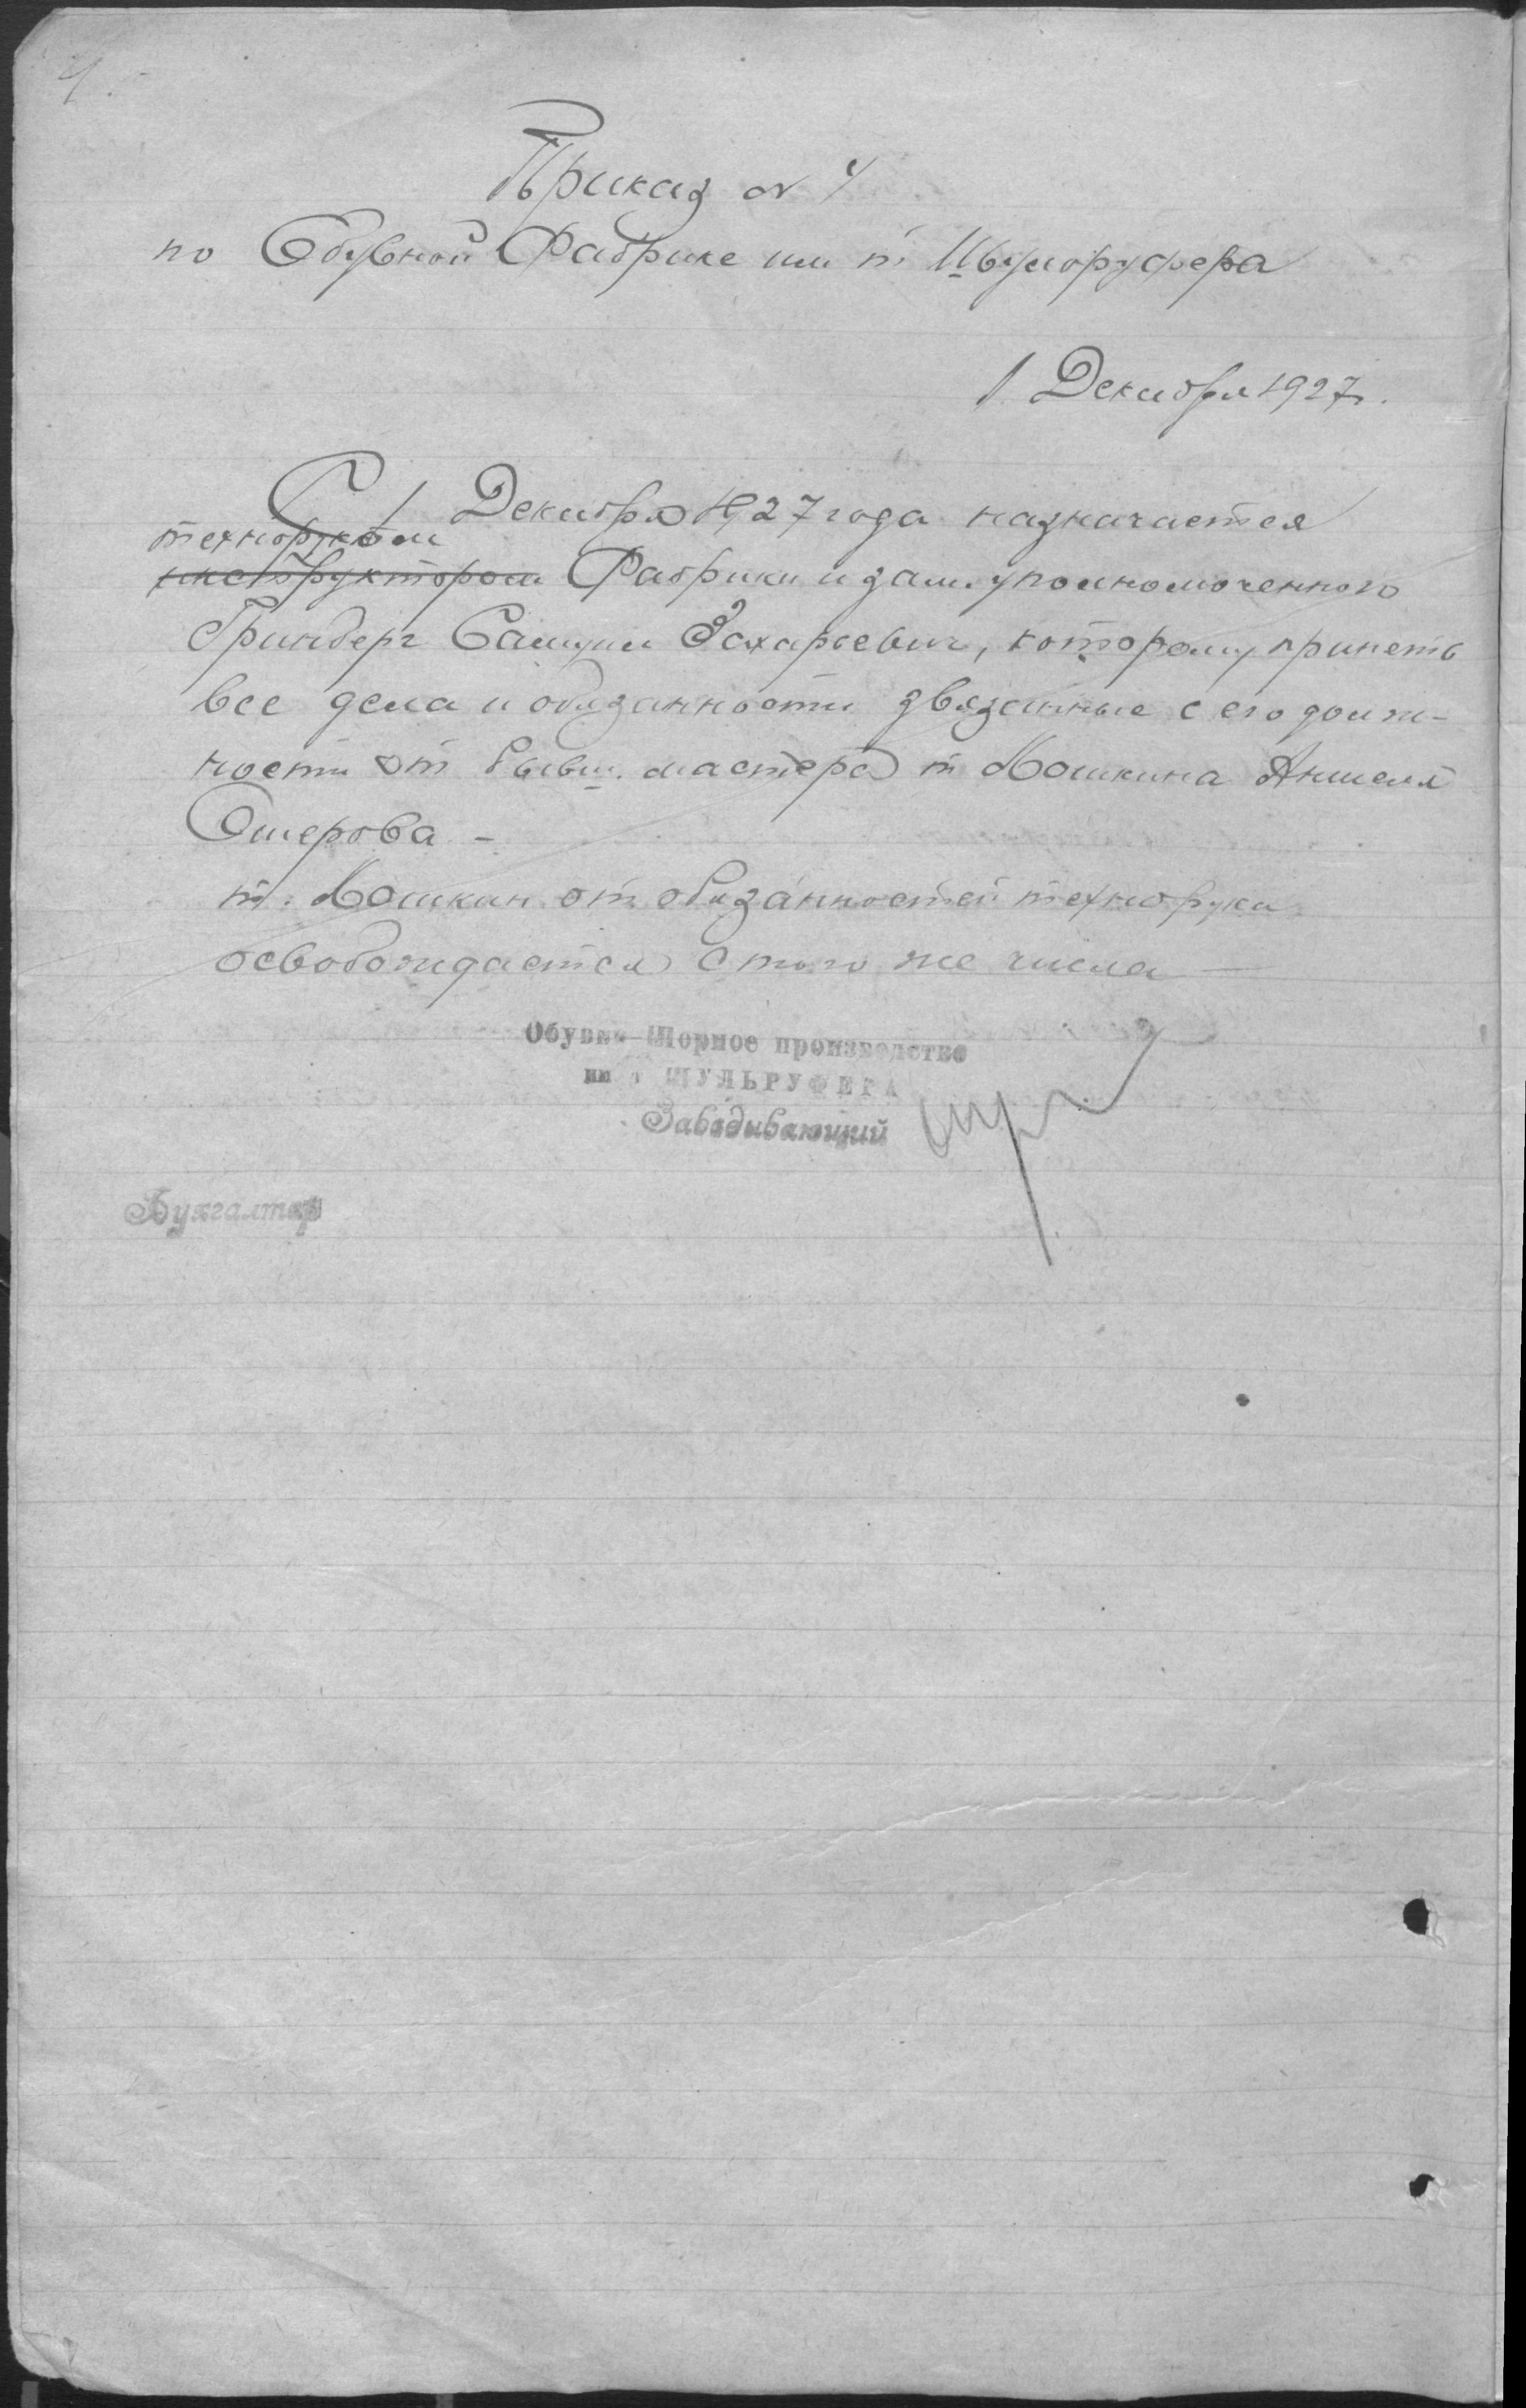 4.
Приказ № 4
по Обувной Фабрике им т. Шульруфера
1 Декабря 1927 г.
С 1 Декабря 1927 года назначается
техноруком
инструктором Фабрики и зам. уполномоченного
Гринберг Самуил Захарьевич, которому принеть
все дела и обязанности звязанные с его долж-
ности от бывш. мастера т. Мошкина Аншеля
Ошерова –
т. Мошкин от обязанностей технорука
освобождается с того же числа —
Обувно-Шорное производство
им т ШУЛЬРУФЕРА
Заведывающий
Бухгалтер